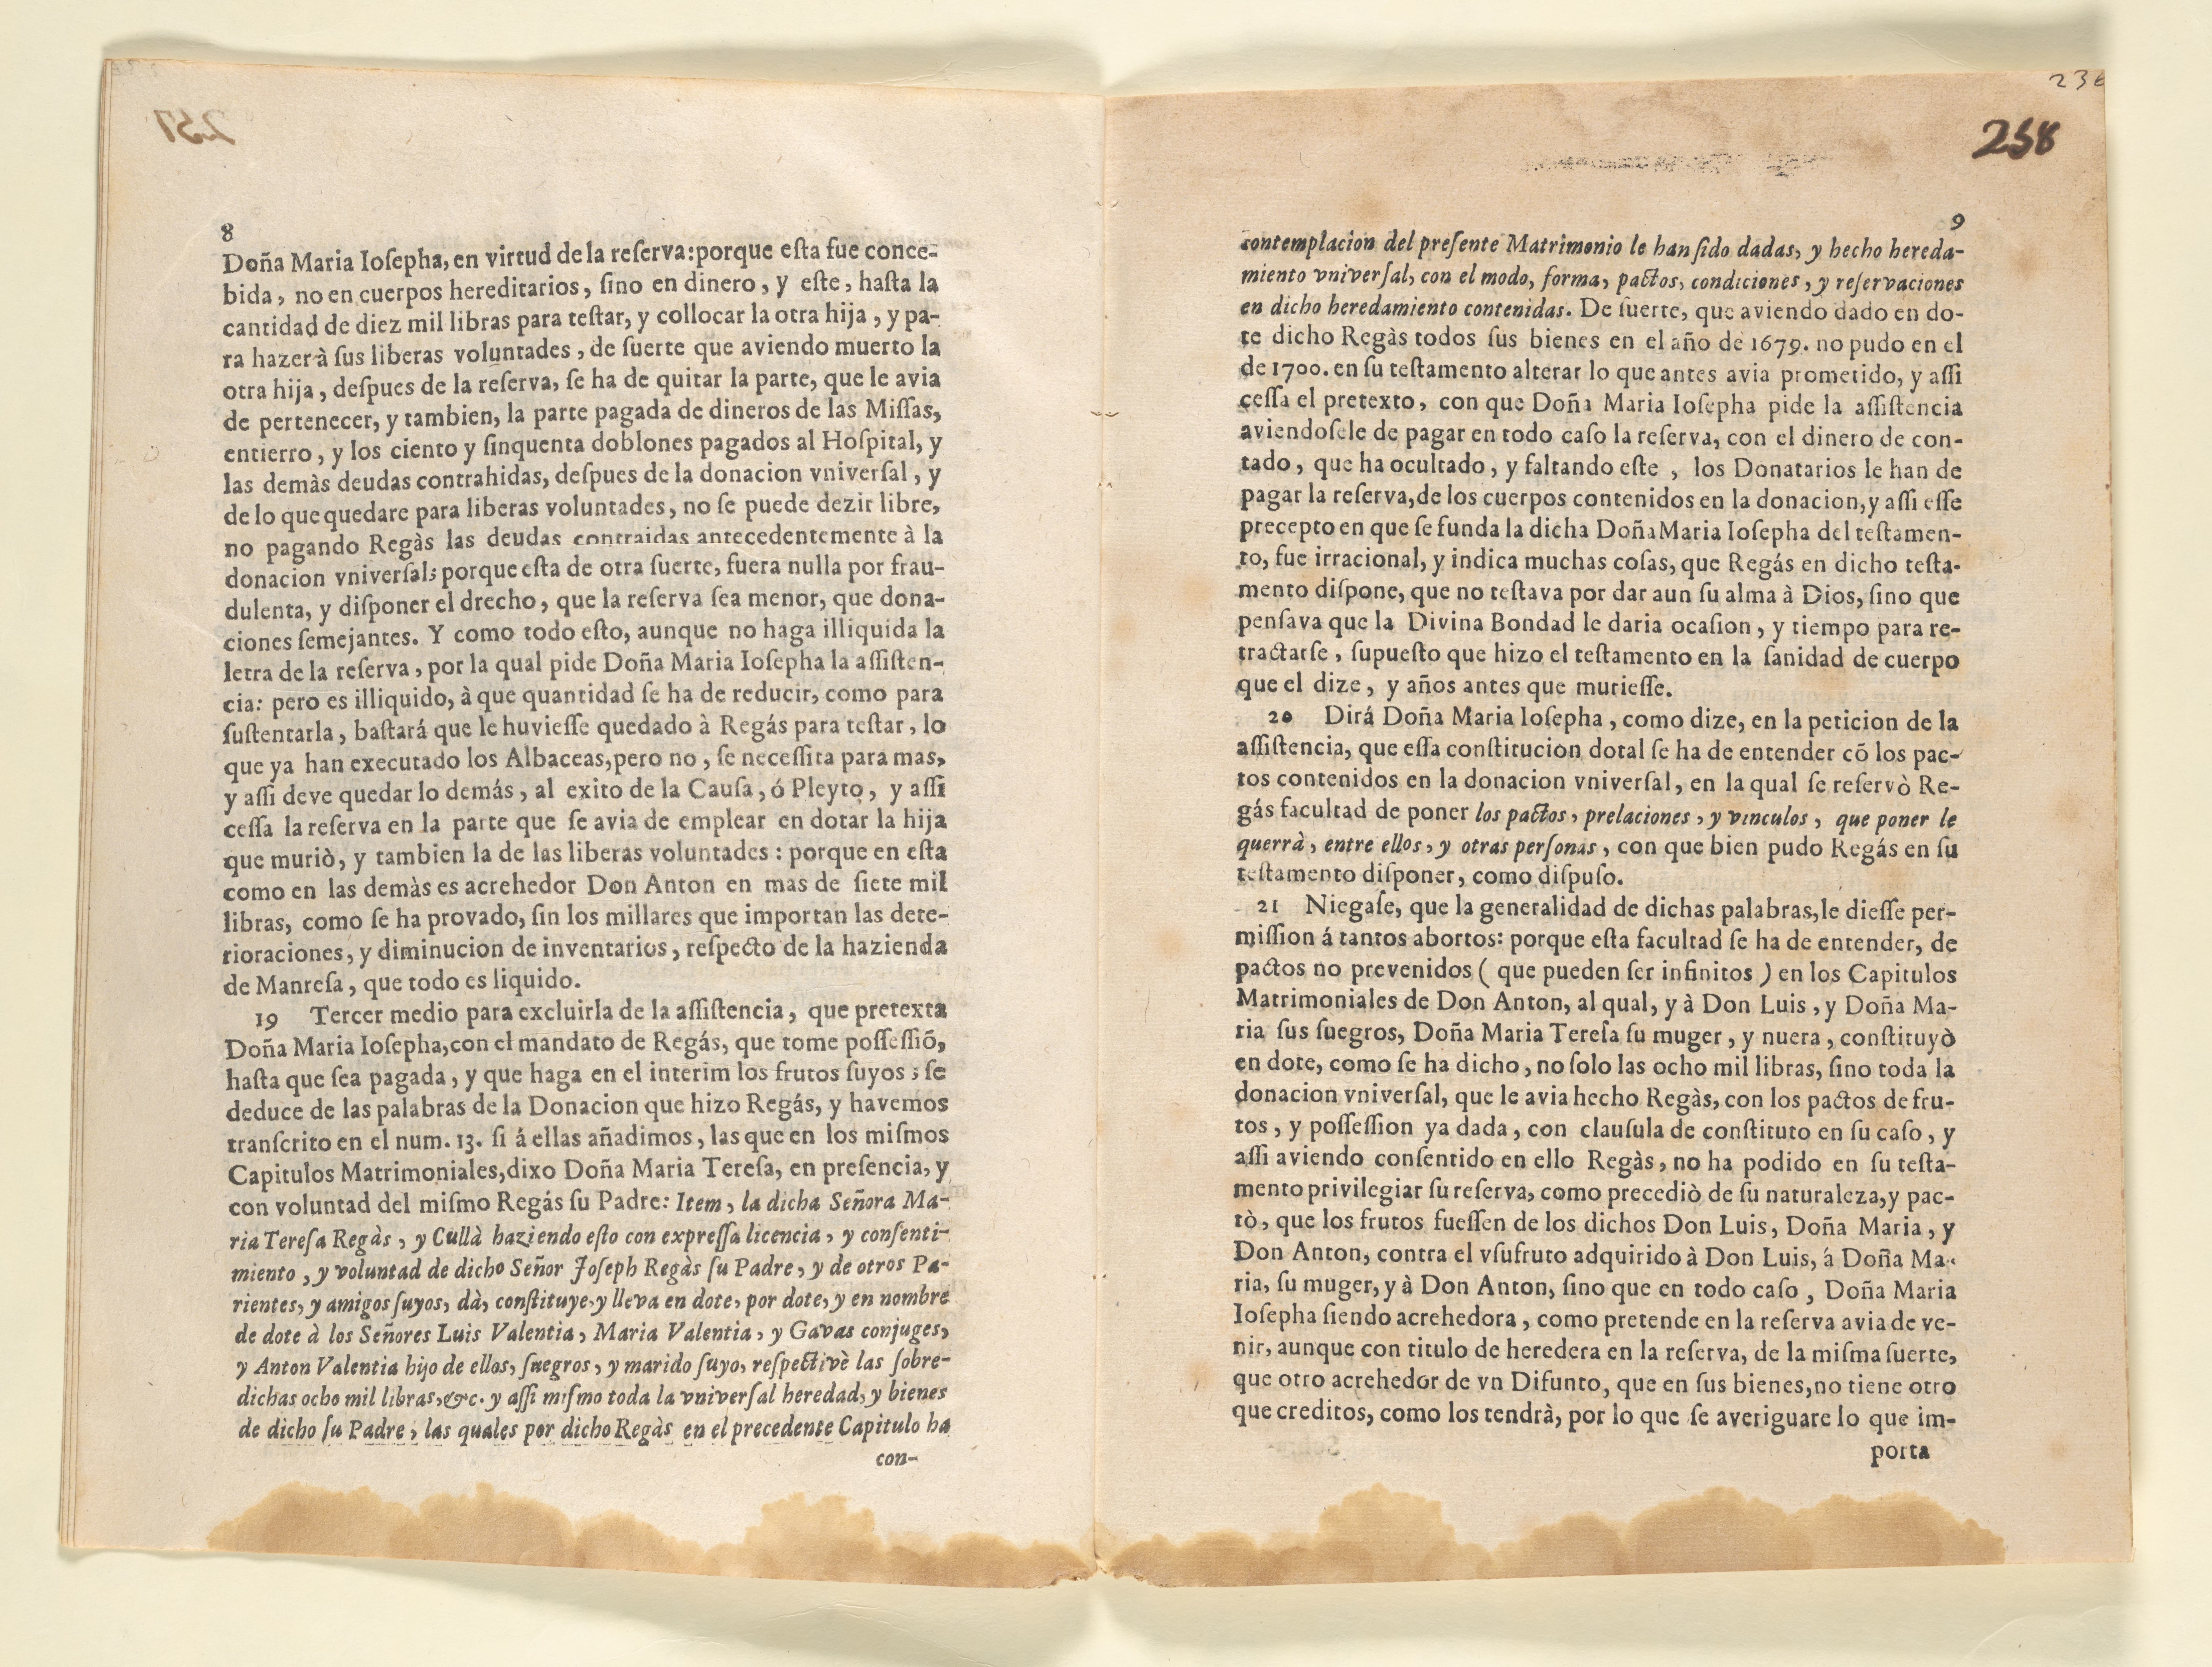 257
8
Doña Maria Ioſepha, en virtud de la reſerva: porque eſta fue conce-
bida, no en cuerpos hereditarios, ſino en dinero, y eſte, haſta la
cantidad de diez mil libras para teſtar, y collocar la otra hija, y pa-
ra hazer à ſus liberas voluntades, de ſuerte que aviendo muerto la
otra hija, deſpues de la reſerva, ſe ha de quitar la parte, que le avia
de pertenecer, y tambien, la parte pagada de dineros de las Miſſas,
entierro, y los ciento y ſinquenta doblones pagados al Hoſpital, y
las demàs deudas contrahidas, deſpues de la donacion vniverſal, y
de lo que quedare para liberas voluntades, no ſe puede dezir libre,
no pagando Regàs las deudas contraidas antecedentemente à la
donacion vniverſal; porque eſta de otra ſuerte, fuera nulla por frau-
dulenta, y diſponer el drecho, que la reſerva ſea menor, que dona-
ciones ſemejantes. Y como todo eſto, aunque no haga illiquida la
letra de la reſerva, por la qual pide Doña Maria Ioſepha la aſſiſten-
cia: pero es illiquido, à que quantidad ſe ha de reducir, como para
ſuſtentarla, baſtará que le huvieſſe quedado à Regás para teſtar, lo
que ya han executado los Albaceas, pero no, ſe neceſſita para mas,
y aſſi deve quedar lo demás, al exito de la Cauſa, ó Pleyto, y aſſi
ceſſa la reſerva en la parte que ſe avia de emplear en dotar la hija
que muriò, y tambien la de las liberas voluntades: porque en eſta
como en las demàs es acrehedor Don Anton en mas de ſiete mil
libras, como ſe ha provado, ſin los millares que importan las dete-
rioraciones, y diminucion de inventarios, reſpecto de la hazienda
de Manreſa, que todo es liquido.
19 Tercer medio para excluirla de la aſſiſtencia, que pretexta
Doña Maria Ioſepha, con el mandato de Regás, que tome poſſeſſiõ,
haſta que ſea pagada, y que haga en el interim los frutos ſuyos; ſe
deduce de las palabras de la Donacion que hizo Regás, y havemos
tranſcrito en el num. 13. ſi á ellas añadimos, las que en los miſmos
Capitulos Matrimoniales, dixo Doña Maria Tereſa, en preſencia, y
con voluntad del miſmo Regás ſu Padre: Item, la dicha Señora Ma-
ria Tereſa Regàs, y Cullà haziendo eſto con expreſſa licencia, y conſenti-
miento, y voluntad de dicho Señor Joſeph Regàs ſu Padre, y de otros Pa-
rientes, y amigos ſuyos, dà, conſtituye, y lleva en dote, por dote, y en nombre
de dote à los Señores Luis Valentia, Maria Valentia, y Gavas conjuges,
y Anton Valentia hijo de ellos, ſuegros, y marido ſuyo, reſpectivè las ſobre-
dichas ocho mil libras, &c. y aſſi miſmo toda la vniverſal heredad, y bienes
de dicho ſu Padre, las quales por dicho Regàs en el precedente Capitulo ha
con-
236
258
9
contemplacion del preſente Matrimonio le han ſido dadas, y hecho hereda-
miento vniverſal, con el modo, forma, pactos, condiciones, y reſervaciones
en dicho heredamiento contenidas. De ſuerte, que aviendo dado en do-
te dicho Regàs todos ſus bienes en el año de 1679. no pudo en el
de 1700. en ſu teſtamento alterar lo que antes avia prometido, y aſſi
ceſſa el pretexto, con que Doña Maria Ioſepha pide la aſſiſtencia
aviendoſele de pagar en todo caſo la reſerva, con el dinero de con-
tado, que ha ocultado, y faltando eſte, los Donatarios le han de
pagar la reſerva, de los cuerpos contenidos en la donacion, y aſſi eſſe
precepto en que ſe funda la dicha Doña Maria Ioſepha del teſtamen-
to, fue irracional, y indica muchas coſas, que Regás en dicho teſta-
mento diſpone, que no teſtava por dar aun ſu alma à Dios, ſino que
penſava que la Divina Bondad le daria ocaſion, y tiempo para re-
tractarſe, ſupueſto que hizo el teſtamento en la ſanidad de cuerpo
que el dize, y años antes que murieſſe.
20 Dirá Doña Maria Ioſepha, como dize, en la peticion de la
aſſiſtencia, que eſſa conſtitucion dotal ſe ha de entender cõ los pac-
tos contenidos en la donacion vniverſal, en la qual ſe reſervò Re-
gás facultad de poner los pactos, prelaciones, y vinculos, que poner le
querrà, entre ellos, y otras perſonas, con que bien pudo Regás en ſu
teſtamento diſponer, como diſpuſo.
21 Niegaſe, que la generalidad de dichas palabras, le dieſſe per-
miſſion á tantos abortos: porque eſta facultad ſe ha de entender, de
pactos no prevenidos ( que pueden ſer infinitos ) en los Capitulos
Matrimoniales de Don Anton, al qual, y à Don Luis, y Doña Ma-
ria ſus ſuegros, Doña Maria Tereſa ſu muger, y nuera, conſtituyò
en dote, como ſe ha dicho, no ſolo las ocho mil libras, ſino toda la
donacion vniverſal, que le avia hecho Regàs, con los pactos de fru-
tos, y poſſeſſion ya dada, con clauſula de conſtituto en ſu caſo, y
aſſi aviendo conſentido en ello Regàs, no ha podido en ſu teſta-
mento privilegiar ſu reſerva, como precediò de ſu naturaleza, y pac-
tò, que los frutos fueſſen de los dichos Don Luis, Doña Maria, y
Don Anton, contra el vſufruto adquirido à Don Luis, á Doña Ma-
ria, ſu muger, y à Don Anton, ſino que en todo caſo, Doña Maria
Ioſepha ſiendo acrehedora, como pretende en la reſerva avia de ve-
nir, aunque con titulo de heredera en la reſerva, de la miſma ſuerte,
que otro acrehedor de vn Difunto, que en ſus bienes, no tiene otro
que creditos, como los tendrà, por lo que ſe averiguare lo que im-
porta